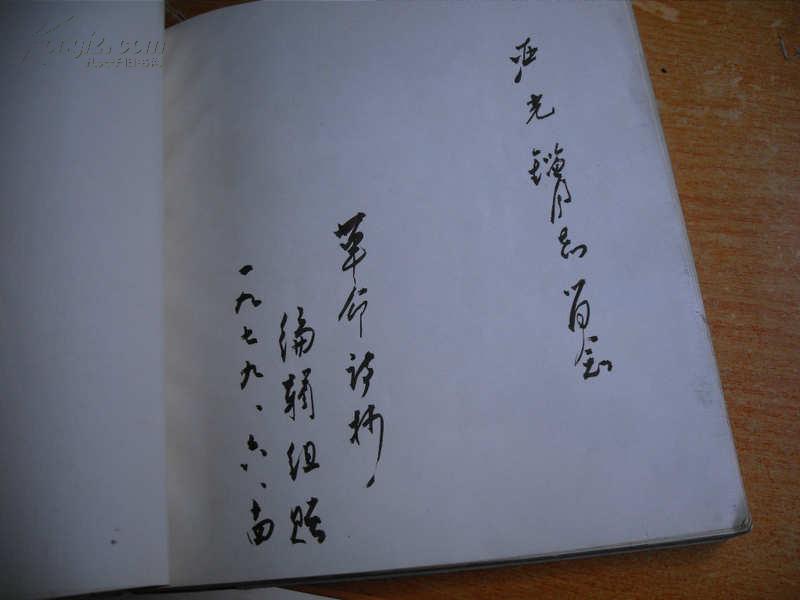 光 同志 留念
革命诗抄
编辑组赠
一九七九、六、十四
Kongfz.com
孔夫子旧书网